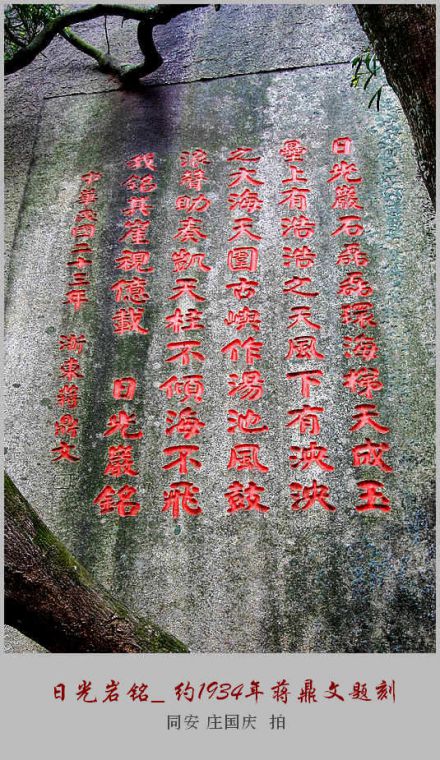 日光巖石磊磊環海梯天成玉
壘上有浩浩之天風下有泱泱
之大海天圍古嶼作湯池風鼓
浪聲助奏凱天柱不傾海不飛
我銘其崖視億載 日光巖銘
中華民國二十三年 浙東蔣鼎文
日光岩铭_ 约1934年蒋鼎文题刻
同安 庄国庆 拍